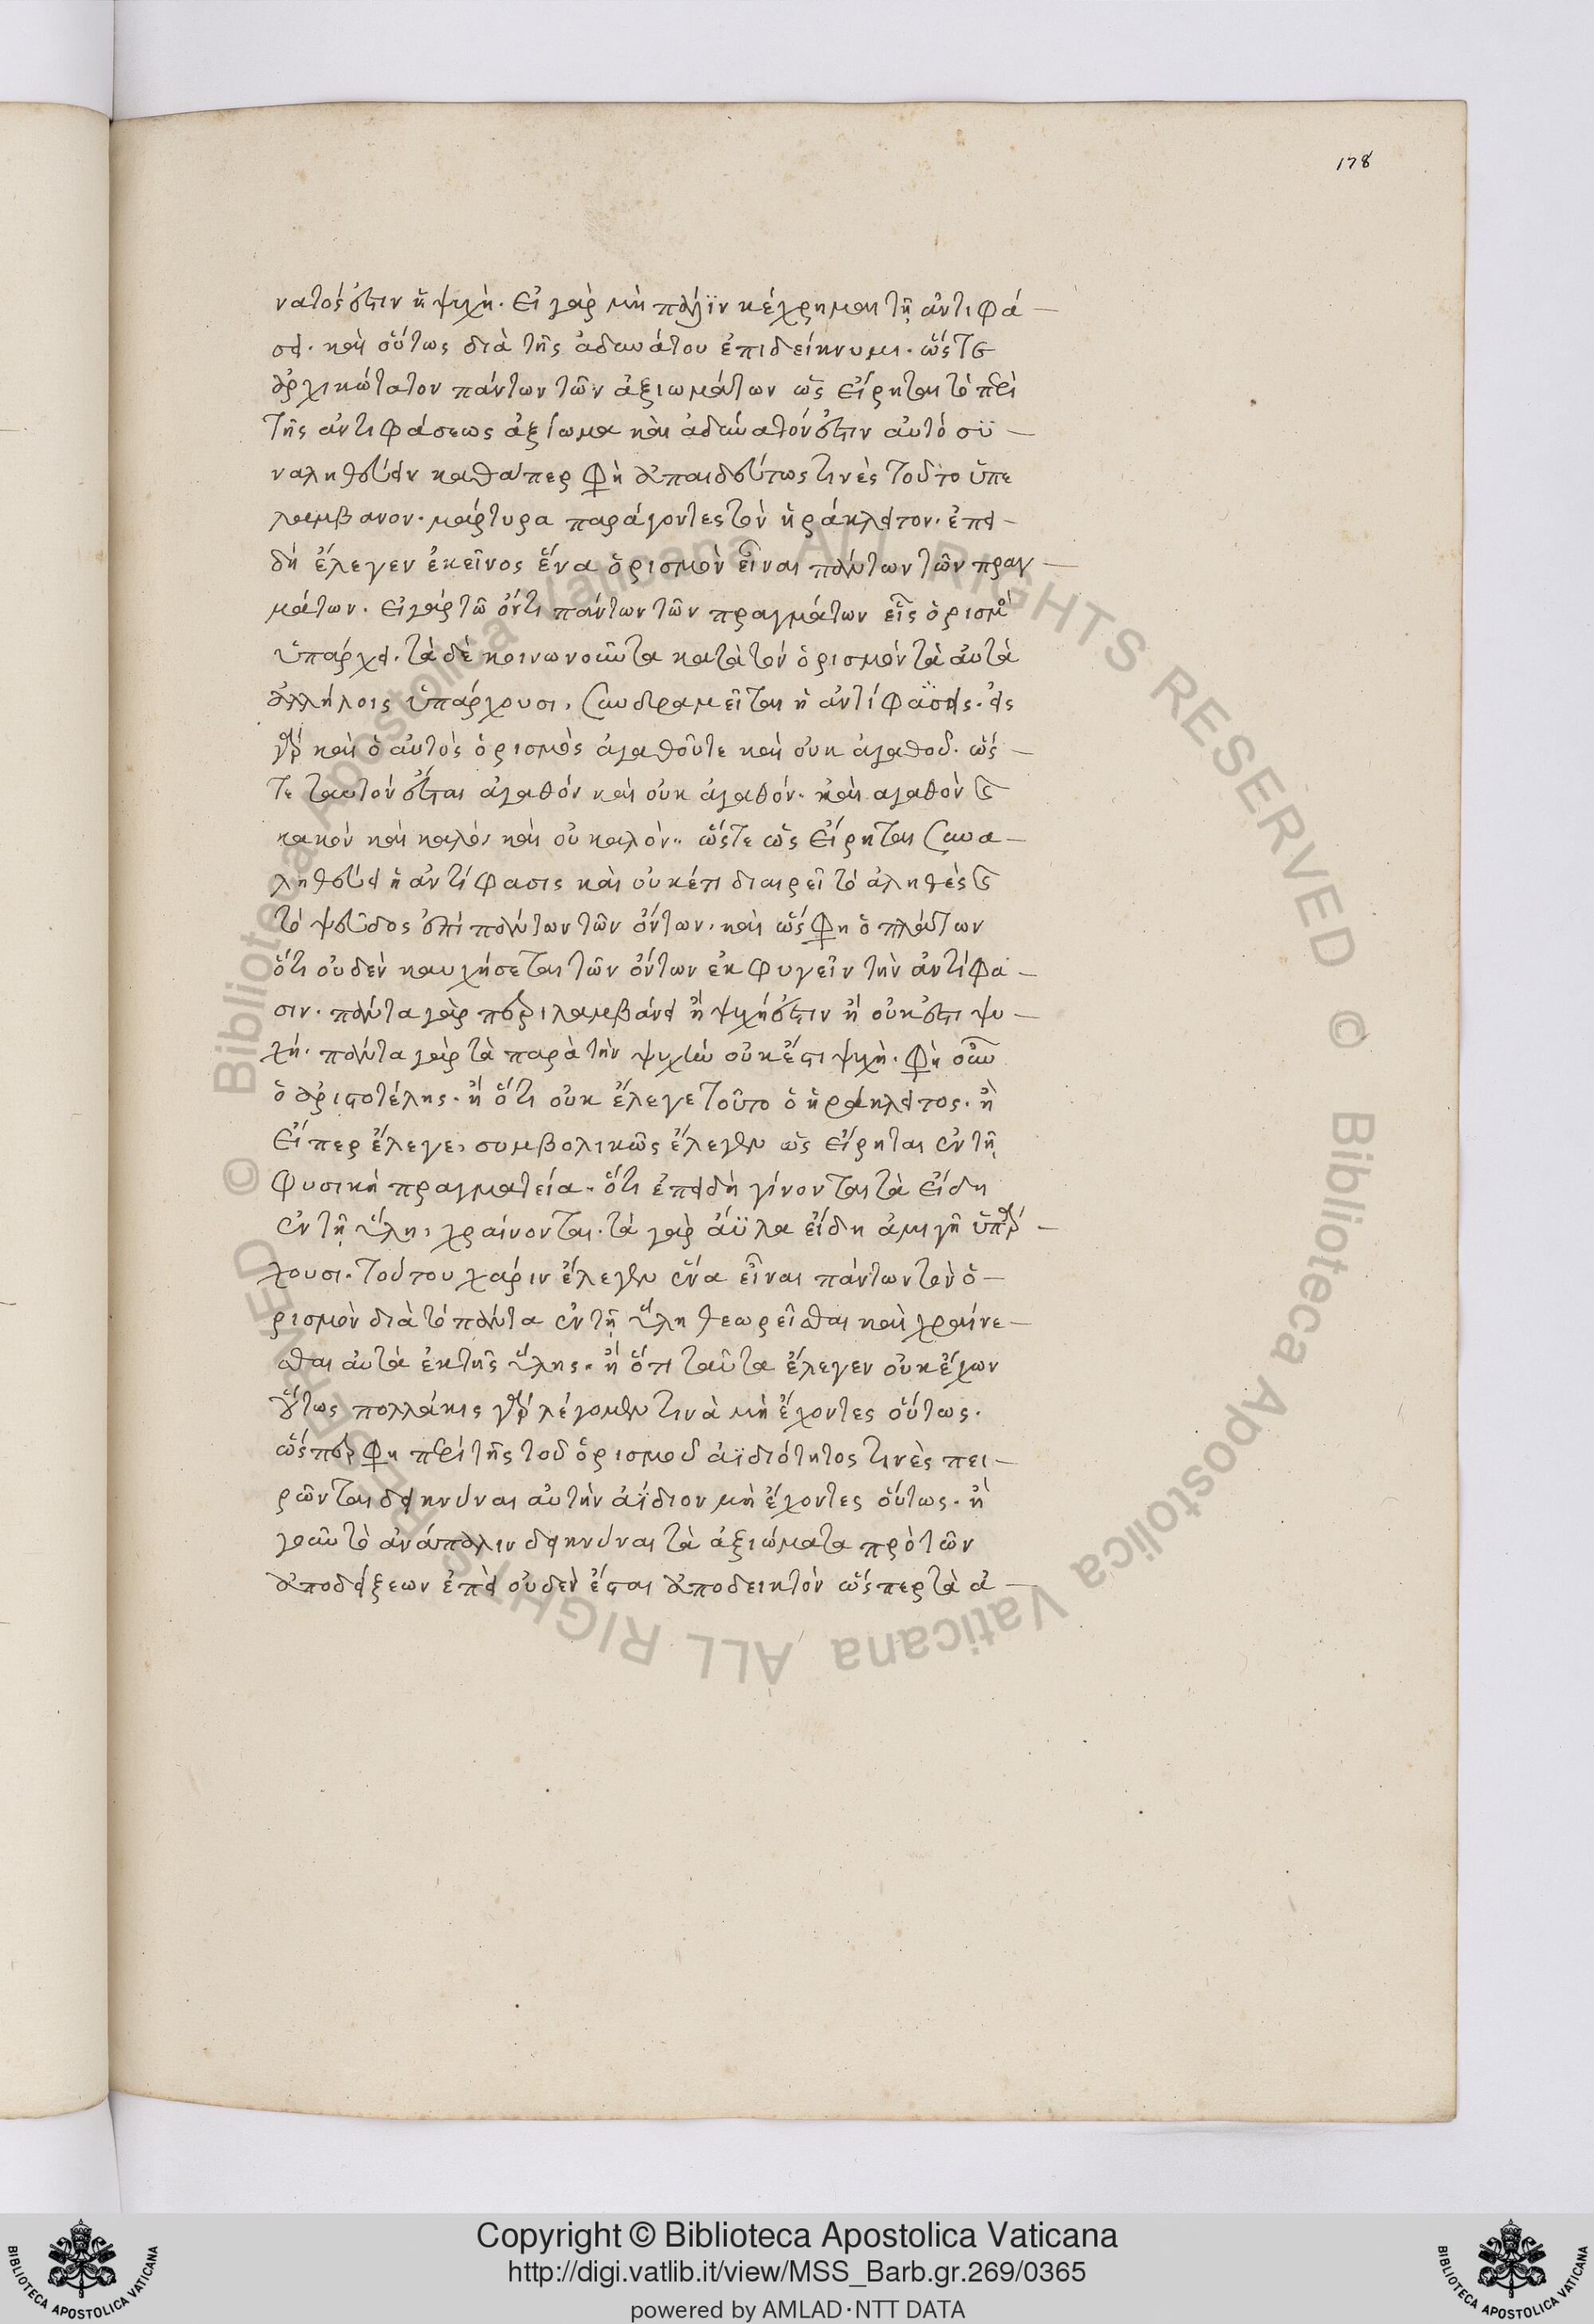 178
νατός ἐστιν ἡ ψυχή. εἰ γὰρ μὴ πάλϊν κέχρημαι τῇ ἀντιφά-
σει. καὶ οὕτως διὰ τῆς ἀδυνάτου ἐπιδείκνυμι. ὥστε
ἀρχικώτατον πάντων τῶν ἀξιωμάτων ὡς εἴρηται τὸ περὶ
τῆς ἀντιφάσεως ἀξίωμα καὶ ἀδύνατόν ἐστιν αὐτὸ συ-
ναληθεύειν καθάπερ φησὶ ἀπαιδεύτως τινὲς τοῦτο ὑπε
λαμβανον. μάρτυρα παράγοντες τὸν ἡράκλειτον. ἐπει-
δὴ ἔλεγεν ἐκεῖνος ἕνα ὁρισμὸν εἶναι πάντων τῶν πραγ-
μάτων. εἰ γὰρ τῶ ὄντι πάντων τῶν πραγμάτων εἷς ὁρισμὸς
ὑπάρχει. τὰ δὲ κοινωνοῦντα κατὰ τὸν ὁρισμὸν τὰ αὐτὰ
ἀλλήλοις ὑπάρχουσι, συνδραμεῖται ἡ ἀντίφασις. εἷς
γὰρ καὶ ὁ αὐτὸς ὁρισμὸς ἀγαθοῦτε καὶ οὐκ ἀγαθοῦ. ὥσ-
τε ταυτὸν ἔσται ἀγαθόν καὶ οὐκ ἀγαθόν. καὶ αγαθὸν καὶ
κακὸν καὶ καλὸν καὶ οὐ καλὸν. ὥστε ὡς εἴρηται συνα-
ληθεύει ἡ ἀντίφασις καὶ οὐκέτι διαιρεῖ τὸ ἀληθὲς καὶ
τὸ ψεῦδος ἐπὶ πάντων τῶν ὄντων. καὶ ὥς φησι ὁ πλάτων
ὅτι οὐδὲν καυχήσεται τῶν ὄντων ἐκφυγεῖν τὴν ἀντίφα-
σιν. πάντα γὰρ περιλαμβάνει ἢ ψυχή ἐστιν ἢ οὐκ ἔστι ψυ-
χή. πάντα γὰρ τὰ παρὰ τὴν ψυχὴν οὐκ ἔστι ψυχὴ. φησὶ οὖν
ὁ ἀριστοτέλης. ἢ ὅτι οὐκ ἔλεγε τοῦτο ὁ ἡράκλειτος. ἢ
εἴπερ ἔλεγε, συμβολικῶς ἔλεγεν ὡς εἴρηται ἐν τῇ
φυσικῇ πραγματεία. ὅτι ἐπειδὴ γίνονται τὰ εἴδη
ἐν τῇ ὕλη, χραίνονται. τὰ γὰρ ἄϋλα εἴδη ἀμιγῆ ὑπάρ-
χουσι. τούτου χάριν ἔλεγεν ἕνα εἶναι πάντων τὸν ὁ-
ρισμὸν διὰ τὸ πάντα ἐν τῇ ὕλη θεωρεῖσθαι καὶ χραίνε-
σθαι αὐτὰ ἐκ τῆς ὕλης. ἢ ὅτι ταῦτα ἔλεγεν οὐκ ἔχων
οὕτως πολλάκις γὰρ λέγομεν τινὰ μὴ ἔχοντες οὕτως.
ὥσπερ φησι περὶ τῆς τοῦ ὁρισμοῦ ἀϊδιότητος τινὲς πει-
ρῶνται δεικνύναι αὐτὴν ἀΐδιον μὴ ἔχοντες οὕτως. ἢ
γοῦν τὸ ἀνάπαλιν δεικνύναι τὰ ἀξιώματα πρὸ τῶν
ἀποδείξεων ἐπεὶ οὐδὲν ἔσται ἀποδεικτὸν ὥσπερ τὰ ἀ-
Copyright © Biblioteca Apostolica Vaticana
http://digi.vatlib.it/view/MSS_Barb.gr.269/0365
powered by AMLAD·NTT DATA
BIBLIOTECA APOSTOLICA VATICANA
BIBLIOTECA APOSTOLICA VATICANA
© Biblioteca Apostolica Vaticana ALL RIGHTS RESERVED © Biblioteca Apostolica Vaticana ALL RIGHTS RESERVED